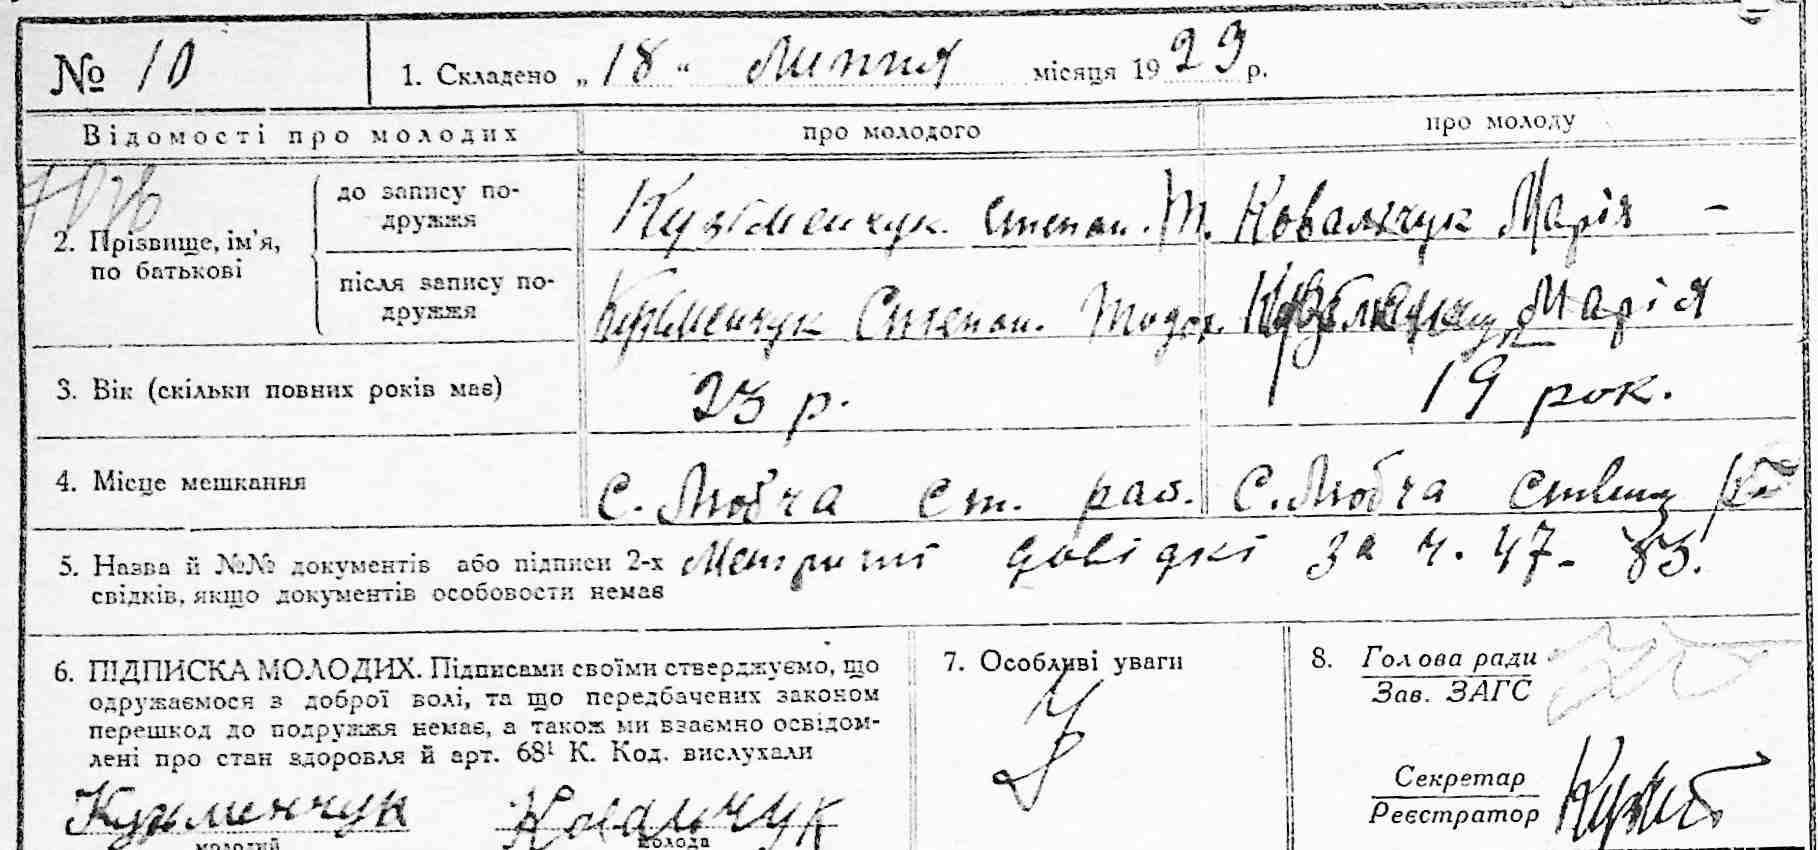 № 10
1. Складено „18“ Липня місяця 1923 р.
Відомості про молодих
про молодого
про молоду
2. Прізвище, ім'я, по батькові
до запису по-
дружжя
Кузьменчук Степан. Т.
Ковальчук Марія –
після запису по-
дружжя
Кузьменчук Степан. Тодос.
Марія
3. Вік (скільки повних років має)
23 р.
19 рок.
4. Місце мешкання
С. Любча ст. рай.
С. Любча
5. Назва й №№ документів або підписи 2-х
свідків, якщо документів особовости немає
Метричні довідкі за ч. 47-83.
6. ПІДПИСКА МОЛОДИХ. Підписами своїми стверджуємо, що
одружаємося з доброї волі, та що передбачених законом
перешкод до подружжя немає, а також ми взаємно освідом-
лені про стан здоровля й арт. 68¹ К. Код. вислухали
Кузьменчук
молодий
Ковальчук
молода
7. Особливі уваги
8. Голова ради
Зав. ЗАГС
Секретар
Реєстратор